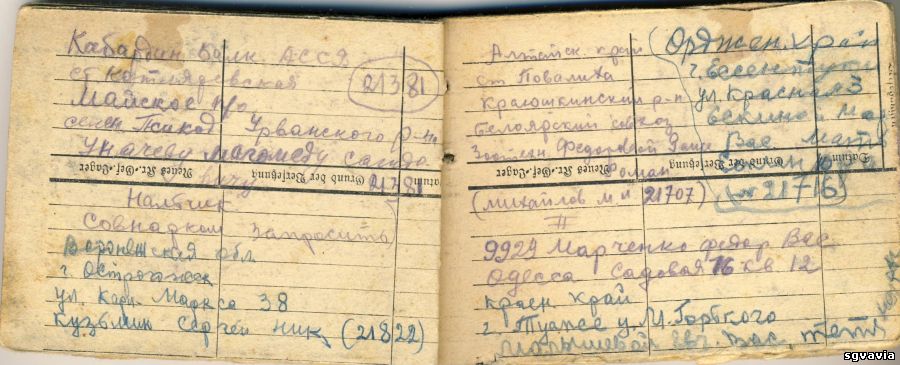 Кабардин Балк АССР
ст Котляревская
21381
Майское п/о
селен Псикод Урванского р-на
Уначеву Магомеду Саидо
вичу 21381
Datum Grund der Versetzung Neues Kr. Gef. Lager
Налчик
Совнадком запросить
Воронежская обл
г. Острогожск
ул. Карл-Маркса 38
Кузьмин Сергей Ник (21822)
Алтайск край
ст Повалиха
Краюшкинский р-н
Белоярский совхоз
Федоровый
роман
Datum Grund der Versetzung Neues Kr. Gef. Lager
(Михайлов М И 21707)
Орджен. край
г. Ессентуки
ул. Красная 3
Вас. Мат
(№ 21716)
9924 Марченко Федор Вас.
Одесса Садовая 16 кв 12
Красн край
г. Туапсе у. М. Горького
Евг. Вас. тетя
sgvavia